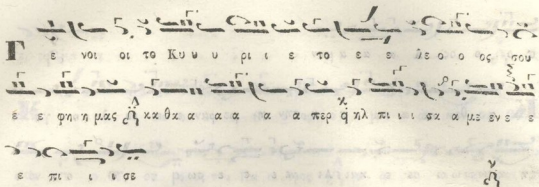 Γ ε νοι οι το Κυ υ υ ρι ι ε το ε ε λε ο ο ος σου
ε ε φη η μας κα θα α α α α περ η ηλ πι ι ι σα α με εν ε ε
ε πι ι ι σε